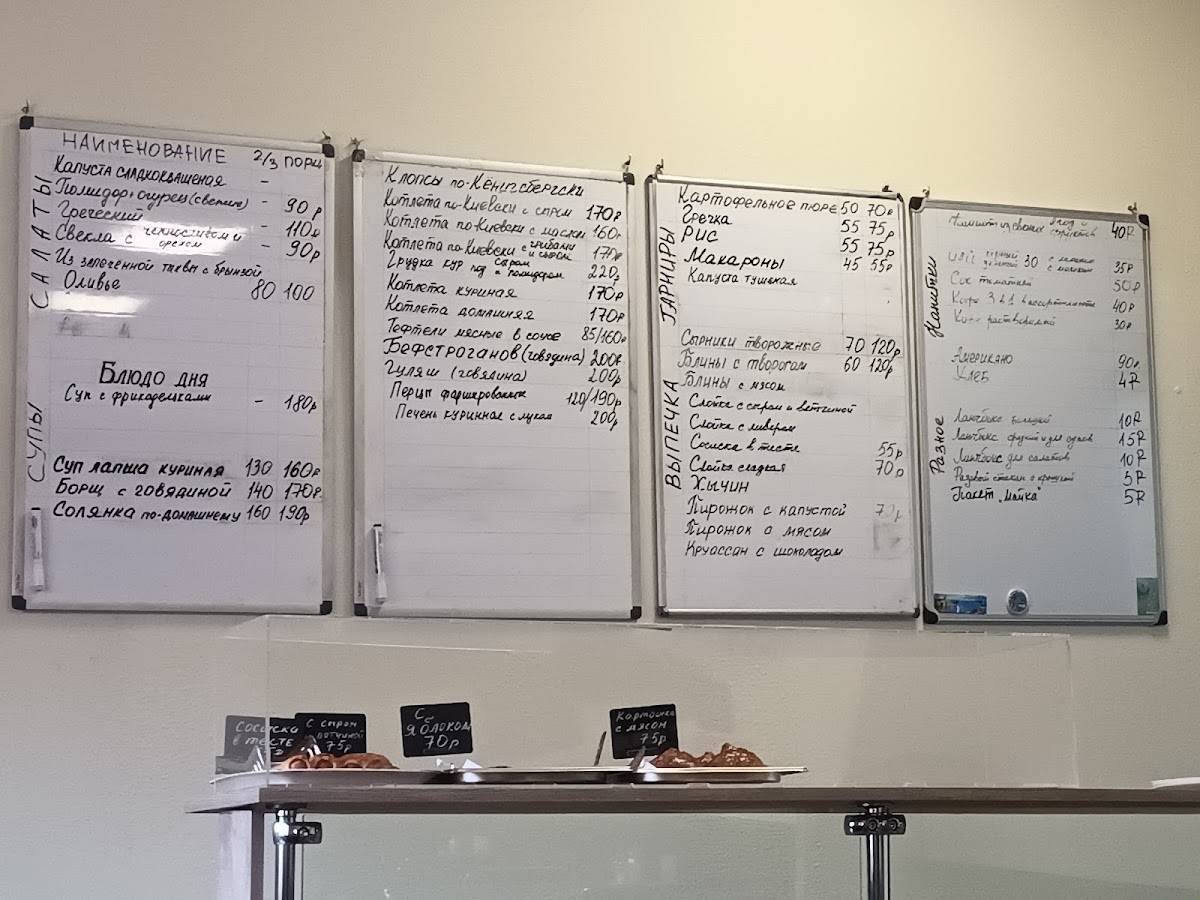 НАИМЕНОВАНИЕ 2/3 ПОРЦ
САЛАТЫ
КАПУСТА СЛАДКОКВАШЕНАЯ -
Помидор+огурец(свежие) - 90р
Греческий - 110р
Свекла с черносливом и орехом - 90р
Из запечённой тыквы с брынзой
Оливье 80 100
БЛЮДО ДНЯ
Суп с фрикадельками - 180р
СУПЫ
СУП ЛАПША КУРИНАЯ 130 160р
БОРЩ С ГОВЯДИНОЙ 140 170р
СОЛЯНКА ПО-ДОМАШНЕМУ 160 190р
Клопсы по-Кёнигсбергски
Котлета по-Киевски с сыром 170р
Котлета по-Киевски с маслом 160р
Котлета по-Киевски с грибами и сыром 170р
Грудка кур под сыром с помидором 220р
Котлета куриная 170р
Котлета домашняя 170р
Тефтели мясные в соусе 85/160р
Бефстроганов (говядина) 200р
Гуляш (говядина) 200р
Перцы фаршированные 120/190р
Печень куриная с луком 200р
ГАРНИРЫ
Картофельное пюре 50 70р
Гречка 55 75р
РИС 55 75р
Макароны 45 55р
Капуста тушеная
ВЫПЕЧКА
Сырники творожные 70 120р
Блины с творогом 60 120р
Блины с мясом
Слойка с сыром и ветчиной
Слойка с ливером
Сосиска в тесте 55р
Слойка сладкая 70р
Хычин
Пирожок с капустой 70р
Пирожок с мясом
Круассан с шоколадом
Напитки
40₽
30 с лимоном с молоком 35₽
Сок томатный 50₽
Кофе 3 в 1 в ассортименте 40₽
Кофе растворимый 30₽
Американо 90₽
Хлеб 4₽
Разное
Ланчбокс 10₽
Ланчбокс 15₽
Ланчбокс для салатов 10₽
Разовый стакан с крышкой 5₽
Пакет "Майка" 5₽
СОСИСКА В ТЕСТЕ
С СЫРОМ ВЕТЧИНОЙ 75р
С ЯБЛОКОМ 70р
КАРТОШКА С МЯСОМ 75р